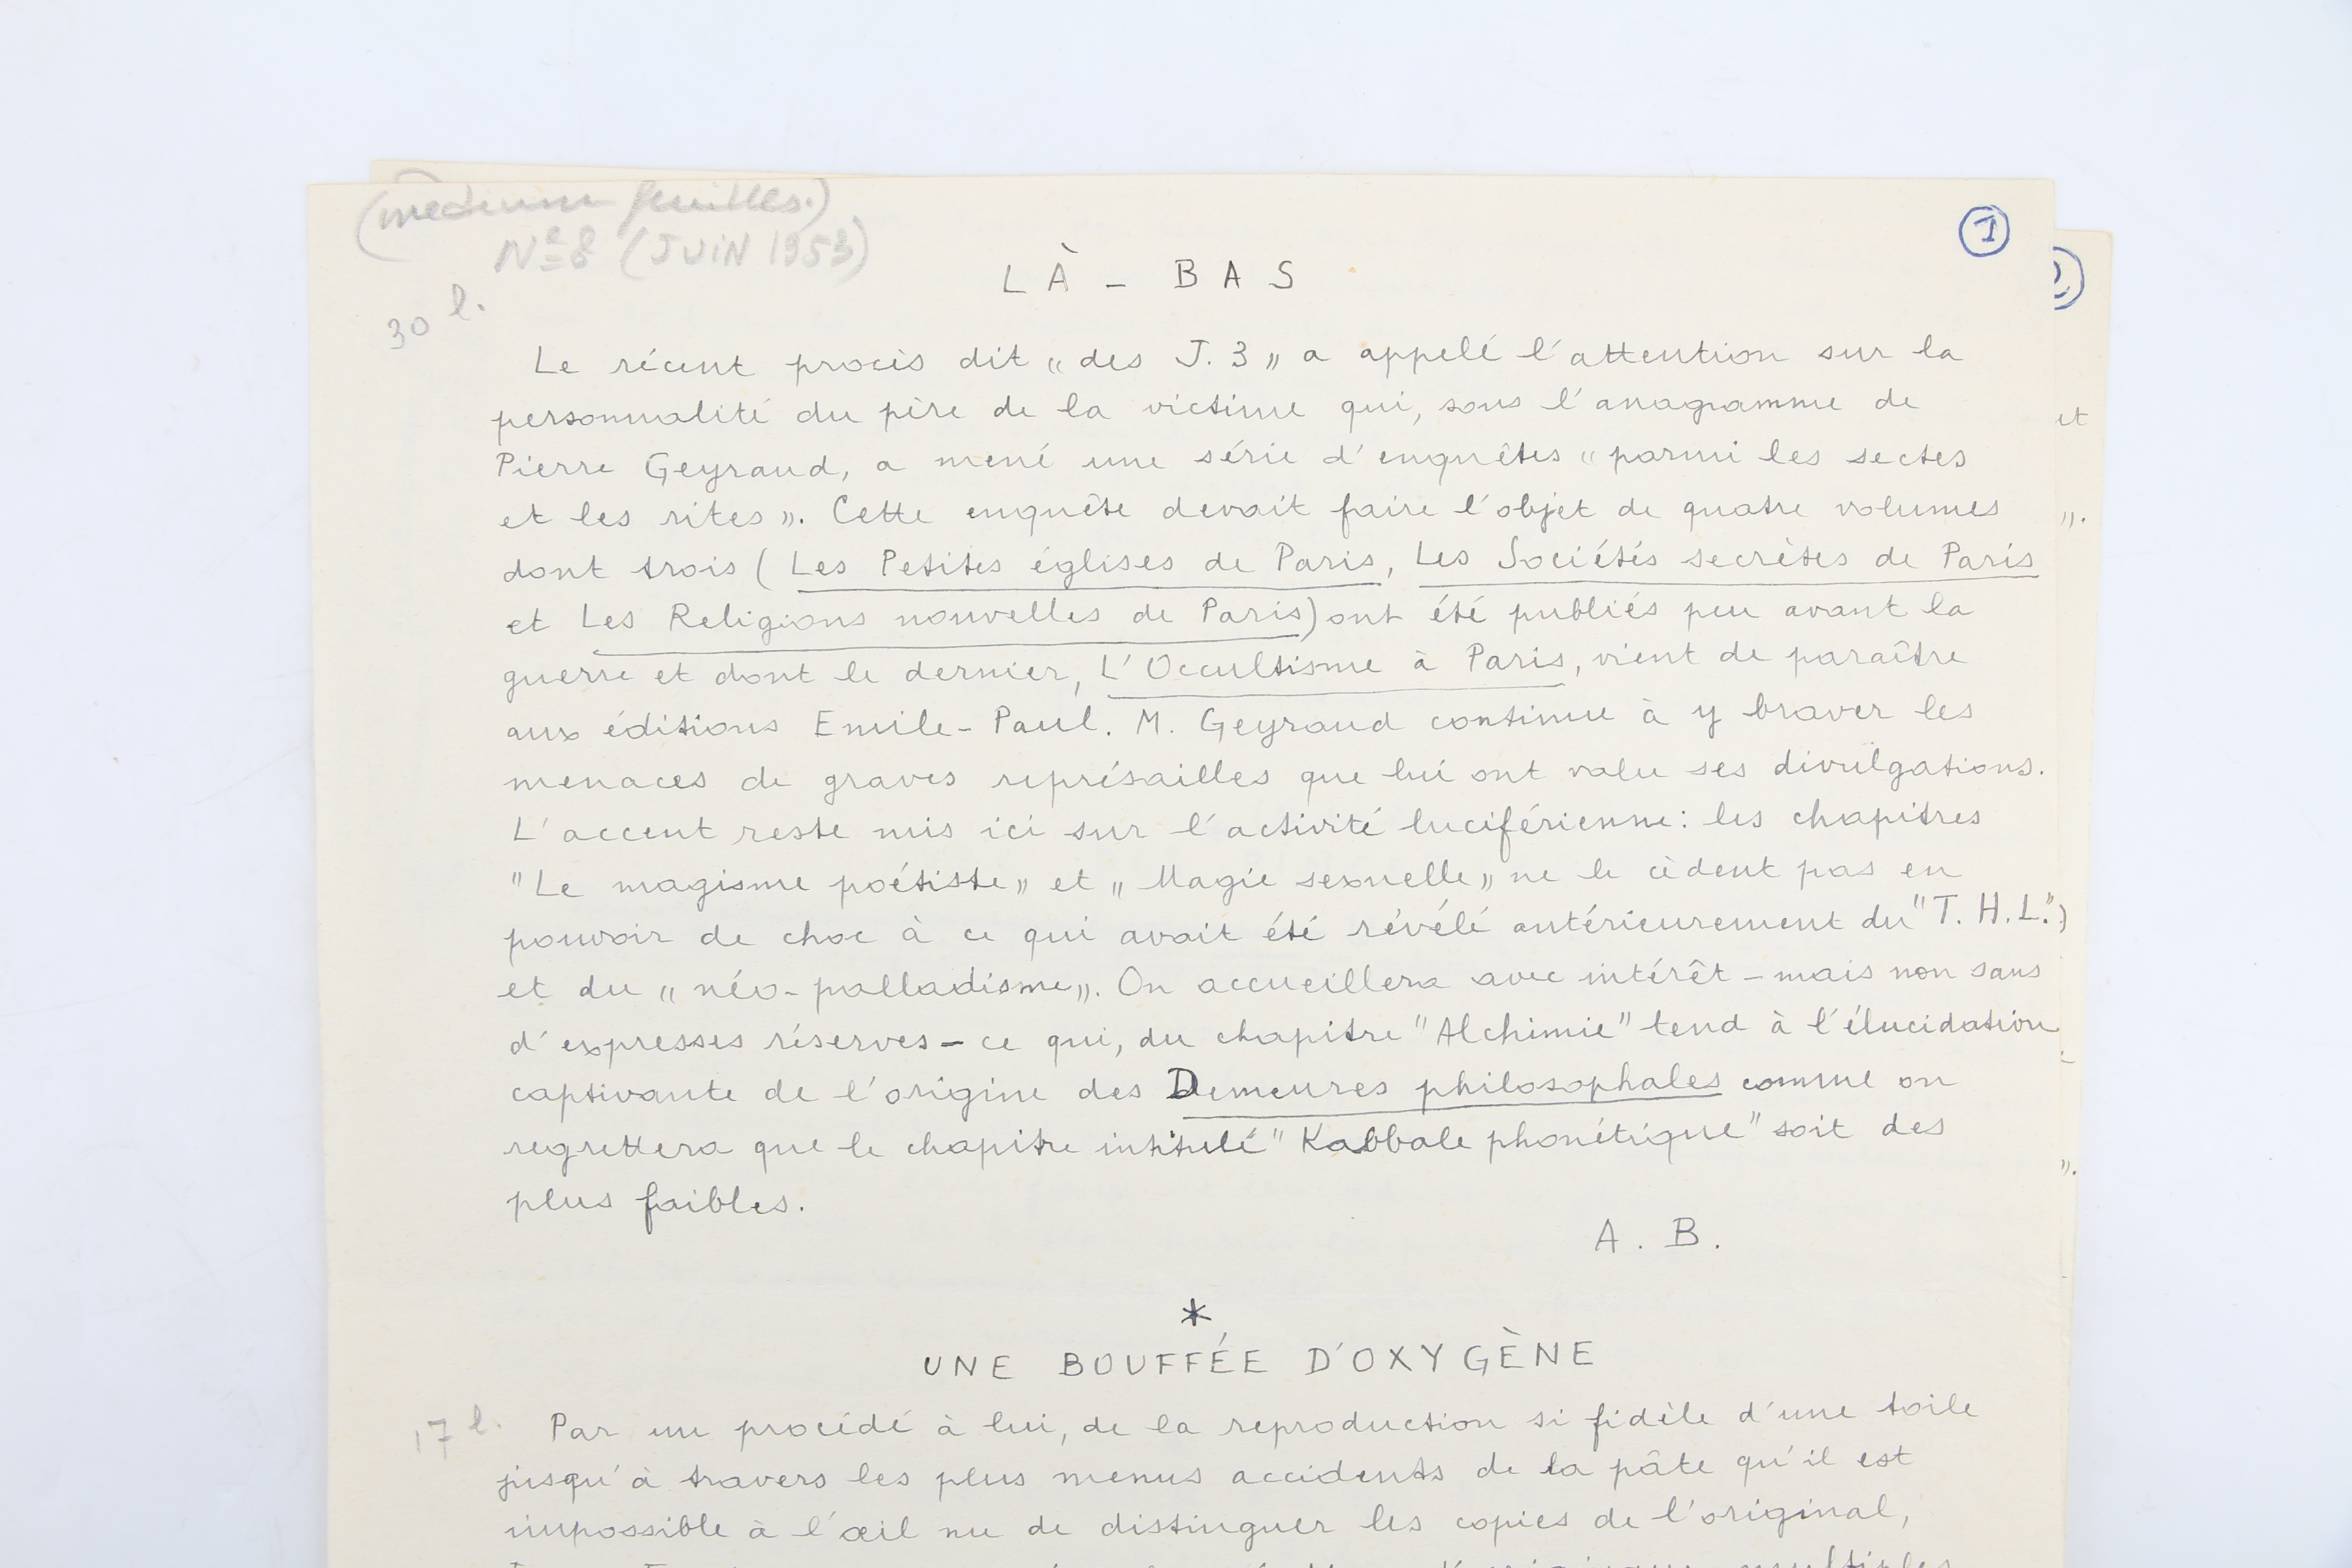 (medium feuilles.)
N° 8 (JUIN 1953)
1
LÀ - BAS
30 l.
Le récent procès dit « des J. 3 » a appelé l'attention sur la
personnalité du père de la victime qui, sous l'anagramme de
Pierre Geyraud, a mené une série d'enquêtes « parmi les sectes
et les rites ». Cette enquête devait faire l'objet de quatre volumes
dont trois ( Les Petites églises de Paris, Les Sociétés secrètes de Paris
et Les Religions nouvelles de Paris) ont été publiés peu avant la
guerre et dont le dernier, L'Occultisme à Paris, vient de paraître
aux éditions Emile-Paul. M. Geyraud continue à y braver les
menaces de graves représailles que lui ont valu ses divulgations.
L'accent reste mis ici sur l'activité luciférienne : les chapitres
"Le magisme poétiste" et "Magie sexuelle" ne le cèdent pas en
pouvoir de choc à ce qui avait été révélé antérieurement du "T. H. L."
et du « néo-palladisme ». On accueillera avec intérêt – mais non sans
d'expresses réserves – ce qui, du chapitre "Alchimie" tend à l'élucidation
captivante de l'origine des Demeures philosophales comme on
regrettera que le chapitre intitulé "Kabbale phonétique" soit des
plus faibles.
A. B.
*
UNE BOUFFÉE D'OXYGÈNE
17 l.
Par un procédé à lui, de la reproduction si fidèle d'une toile
jusqu'à travers les plus menus accidents de la pâte qu'il est
impossible à l'œil nu de distinguer les copies de l'original,
et
».
».